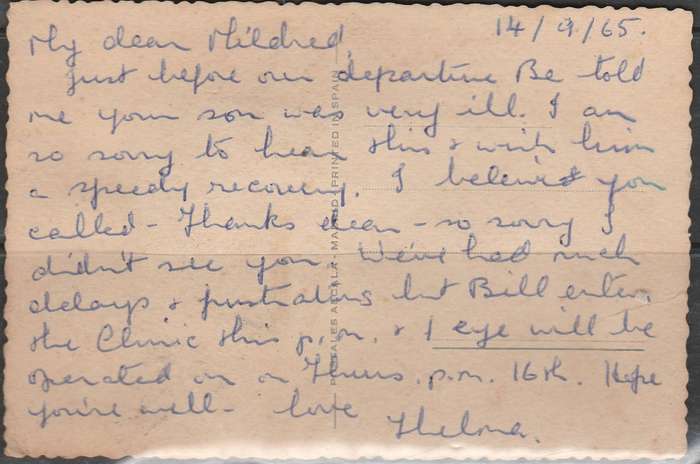 14/9/65.
My dear Mildred,
Just before our departure Be told
me your son was very ill. I am
so sorry to hear this & wish him
a speedy recovery. I believe you
called - Thanks dear - so sorry I
didn't see you. We've had such
delays & frustrations but Bill enters
the Clinic this p.m. & 1 eye will be
operated on on Thurs. p.m. 16th. Hope
you're well - love
Thelma.
POSTALES ALCALA - MADRID (PRINTED IN SPAIN)